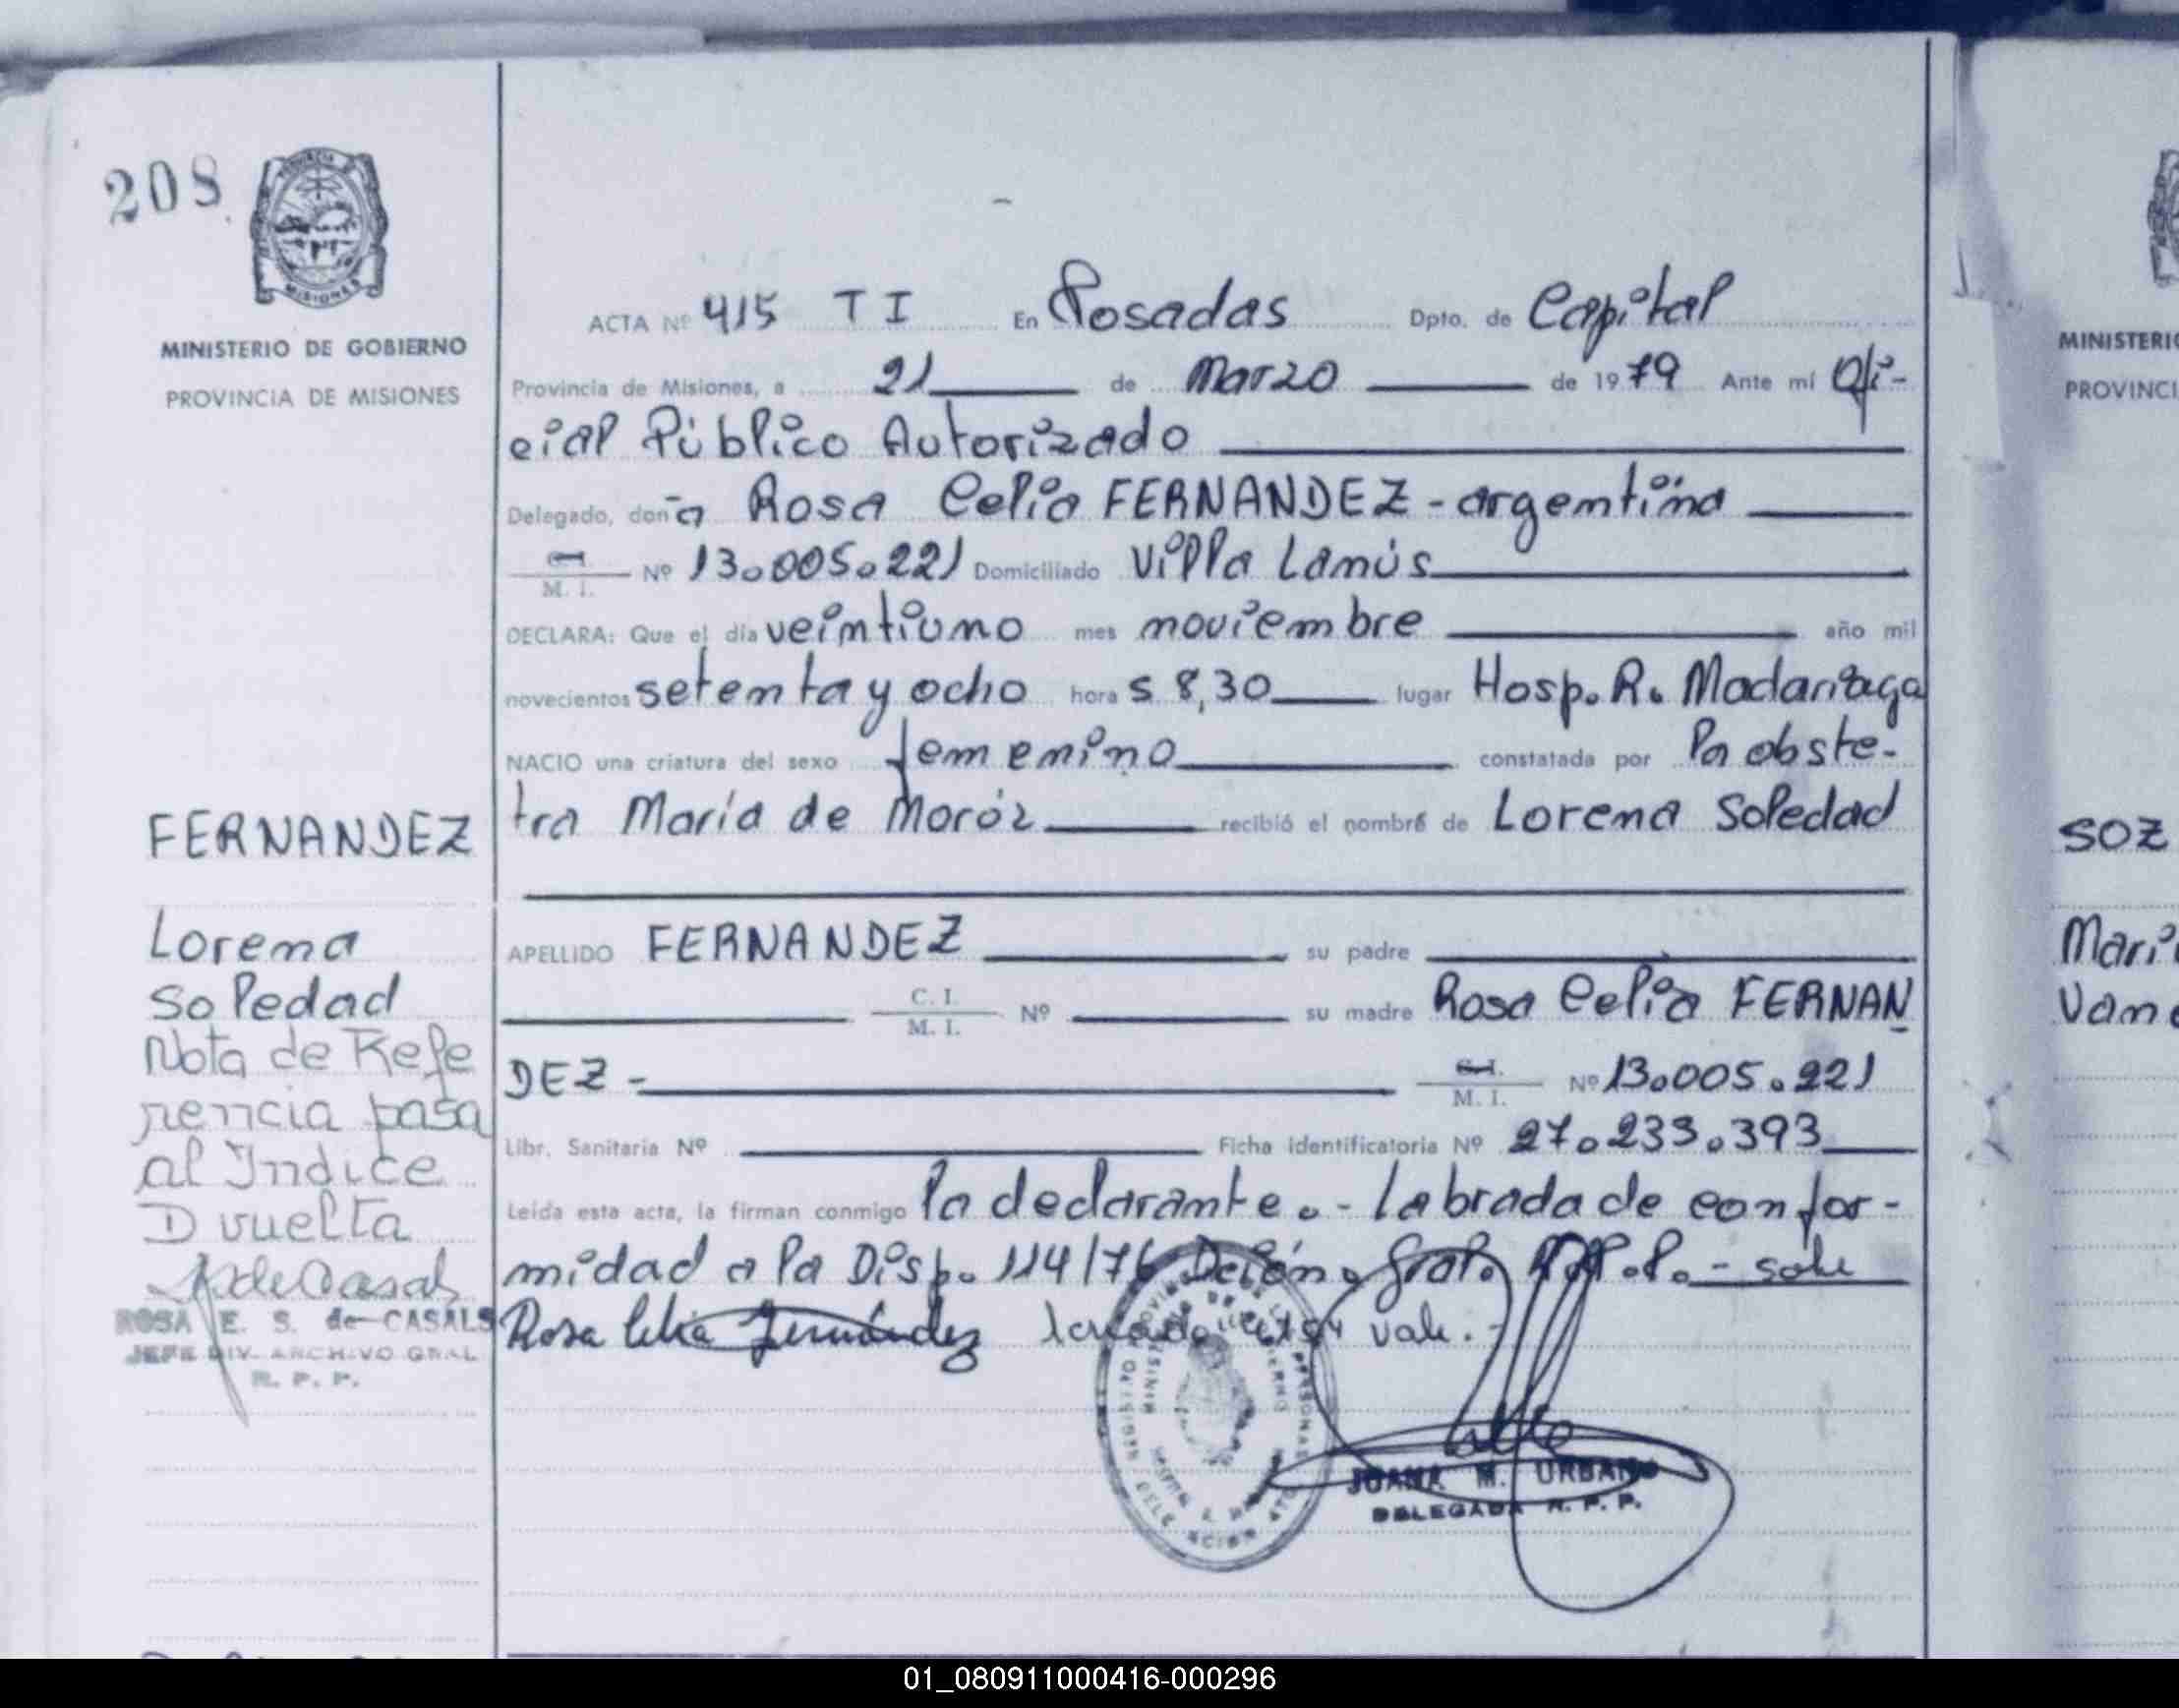 208
MISIONES
MINISTERIO DE GOBIERNO
PROVINCIA DE MISIONES
FERNANDEZ
Lorena
Soledad
Nota de Refe
rencia pasa
al Indice
D vuelta
ROSA E. S. de CASALS
JEFE DIV. ARCHIVO GRAL
R. P. P.
ACTA Nº 415 T I En Posadas Dpto. de Capital
Provincia de Misiones, a 21 de Marzo de 1979 Ante mí Ofi-
cial Público Autorizado
Delegado, doña Rosa Celia FERNANDEZ - argentina
M. I. Nº 13.005.221 Domiciliado Villa Lanús
DECLARA: Que el día veintiuno mes noviembre año mil
novecientos setenta y ocho hora s 8,30 lugar Hosp. R. Madariaga
NACIO una criatura del sexo femenino constatada por la obste-
tra María de Moróz recibió el nombre de Lorena Soledad
APELLIDO FERNANDEZ su padre
C. I. M. I. Nº su madre Rosa Celia FERNAN
DEZ - M. I. Nº 13.005.221
Libr. Sanitaria Nº Ficha Identificatoria Nº 27.233.393
Leída esta acta, la firman conmigo la declarante. - Labrada de confor-
midad a la Disp. 114/76 Gral.
Rosa Celia Fernández vale.-
JUANA M. URBANO
DELEGADA R. P. P.
MINISTERIO
PROVINCI
SOZ
01_080911000416-000296